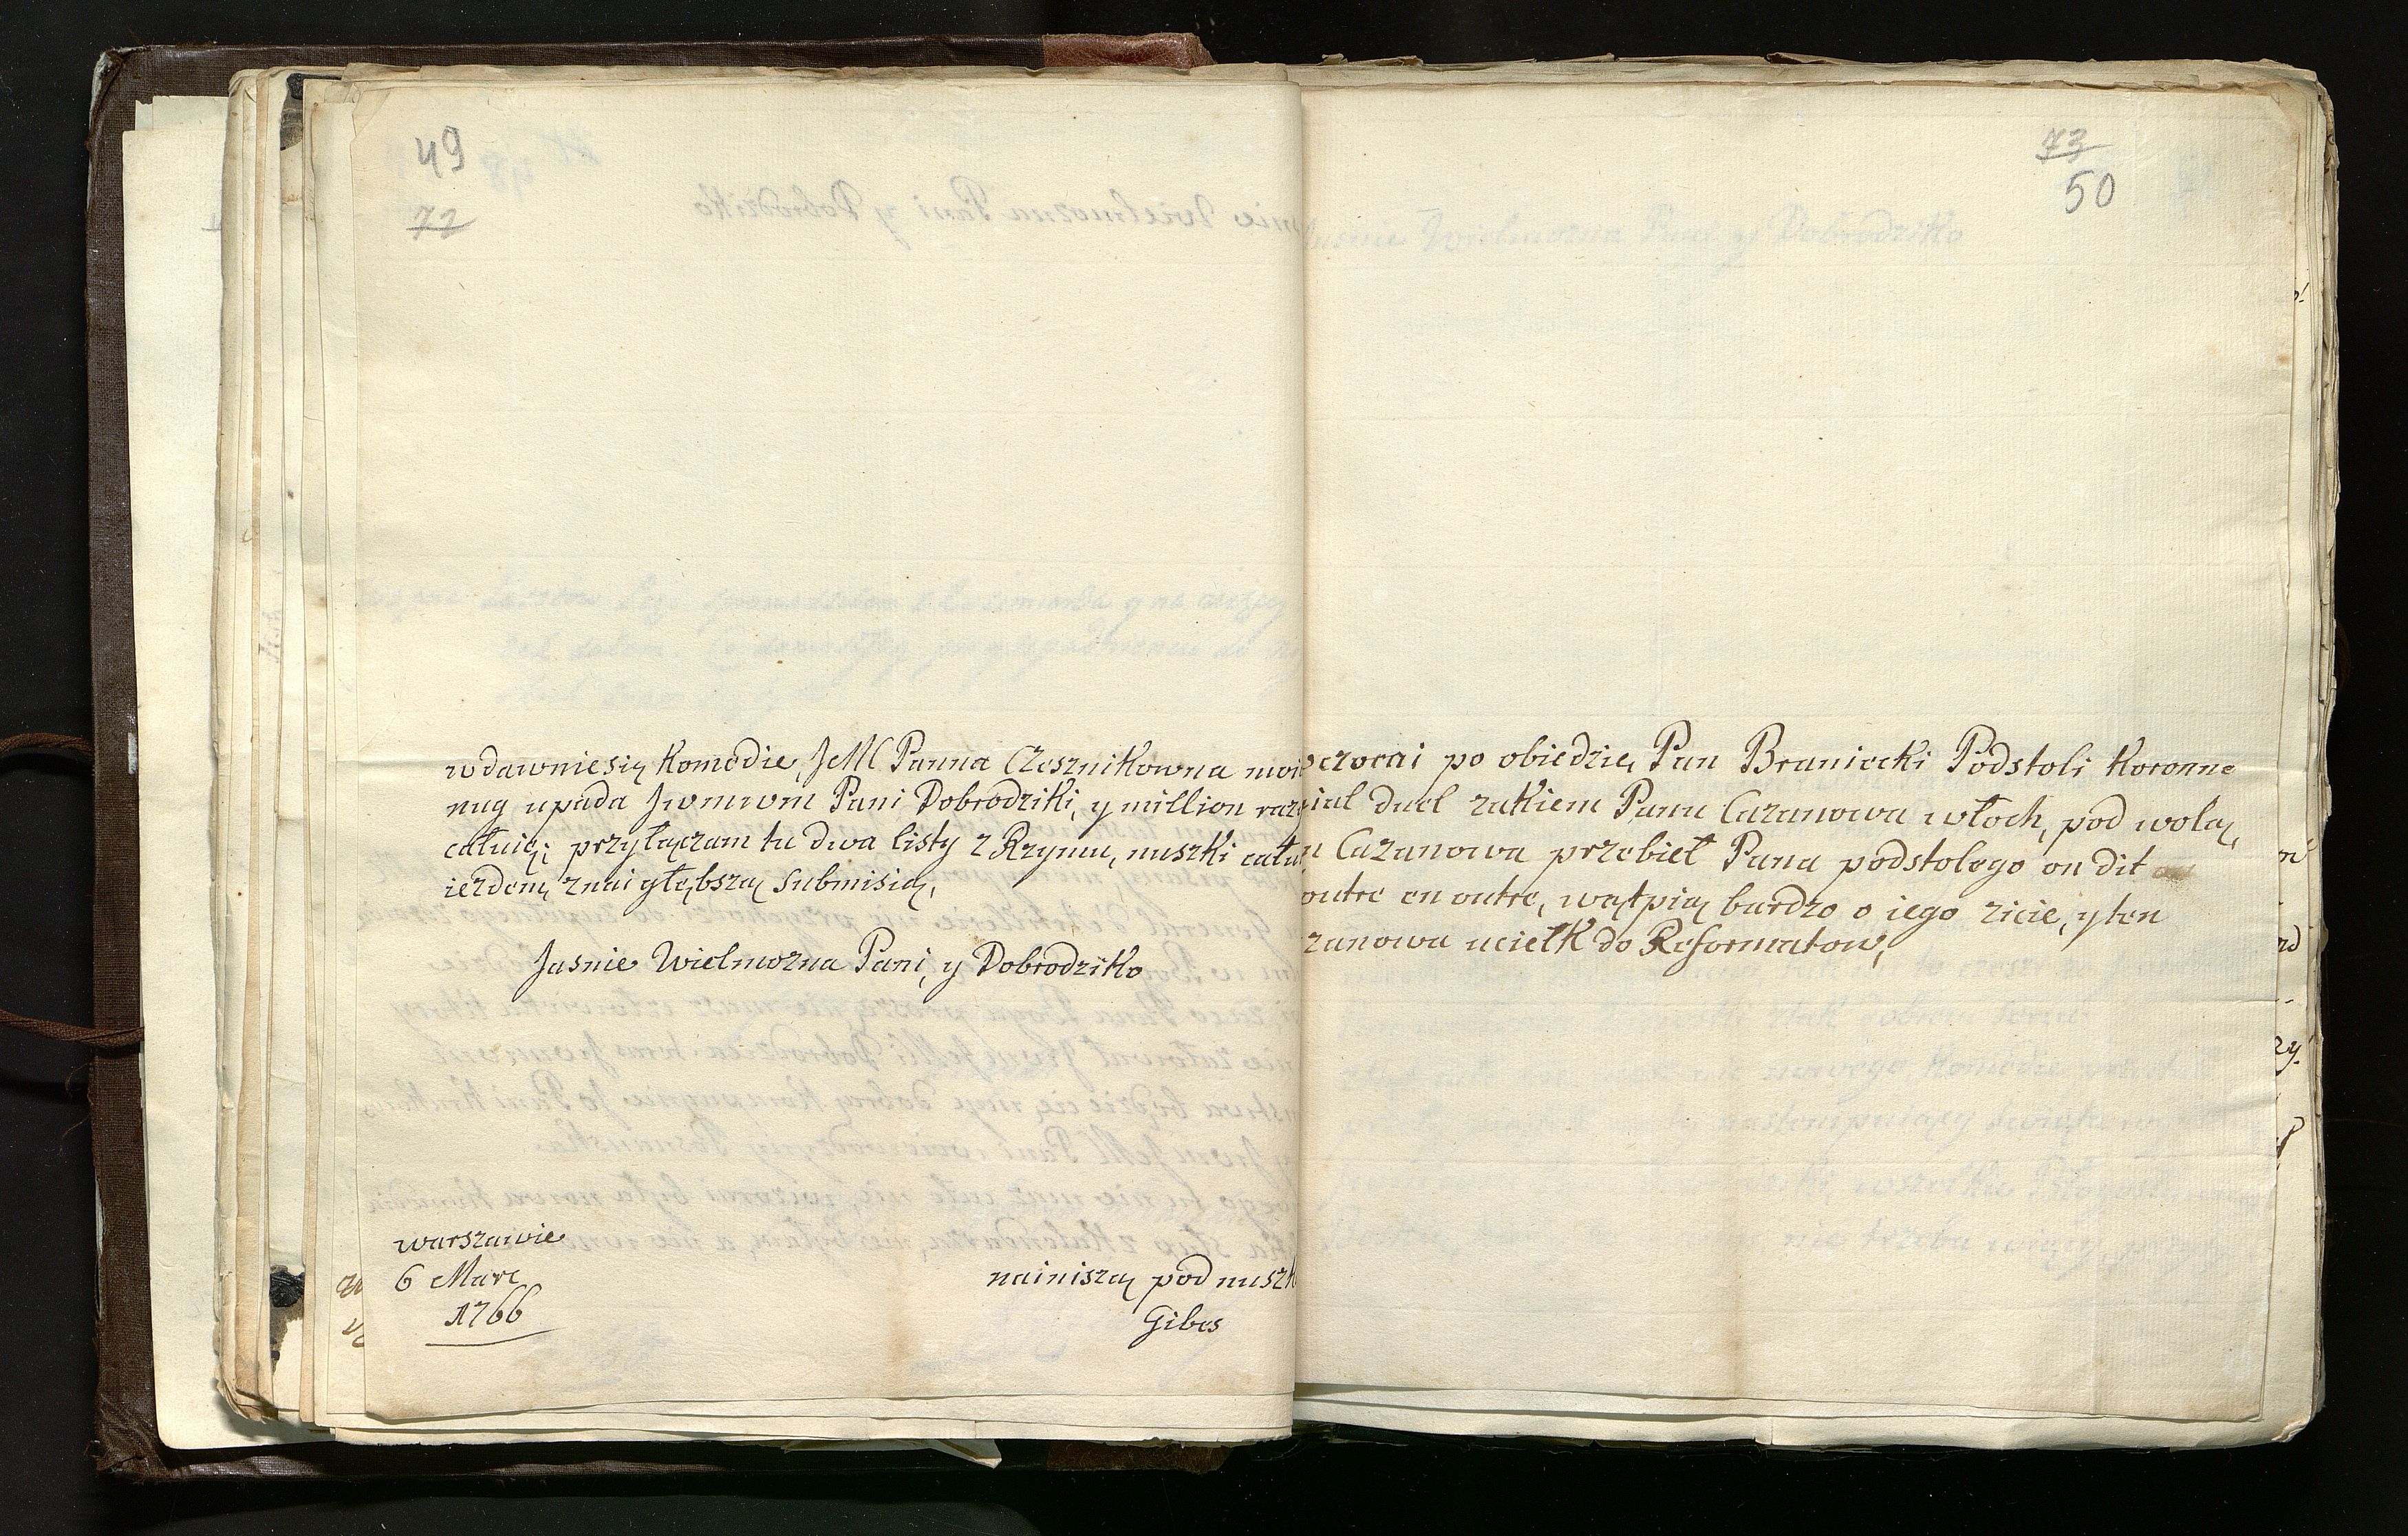 49
72
w dawniesią Komedie, JeM Panna Czesznikowna moi
nug upada Jwmwm Pani Dobrodziki, y million razy
całuią; przyłączam tu dwa listy z Rzymu, nuszki cału
iezdem z nai głębszą submisią,
Jasnie Wielmozna Pani, y Dobrodziko
warszawie
6 Marc
1766
nainisza pod nuszk
Gibes
73
50
wczorai po obiedzie, Pan Braniecki Podstoli Koronne
iał duel zakiem Panu Cazanowa włoch, pod wolą,
n Cazanowa przebieł Pana podstolego on dit
outre en outre, wątpią bardzo o iego zicie, y ten
zanowa uciełk do Reformatow,